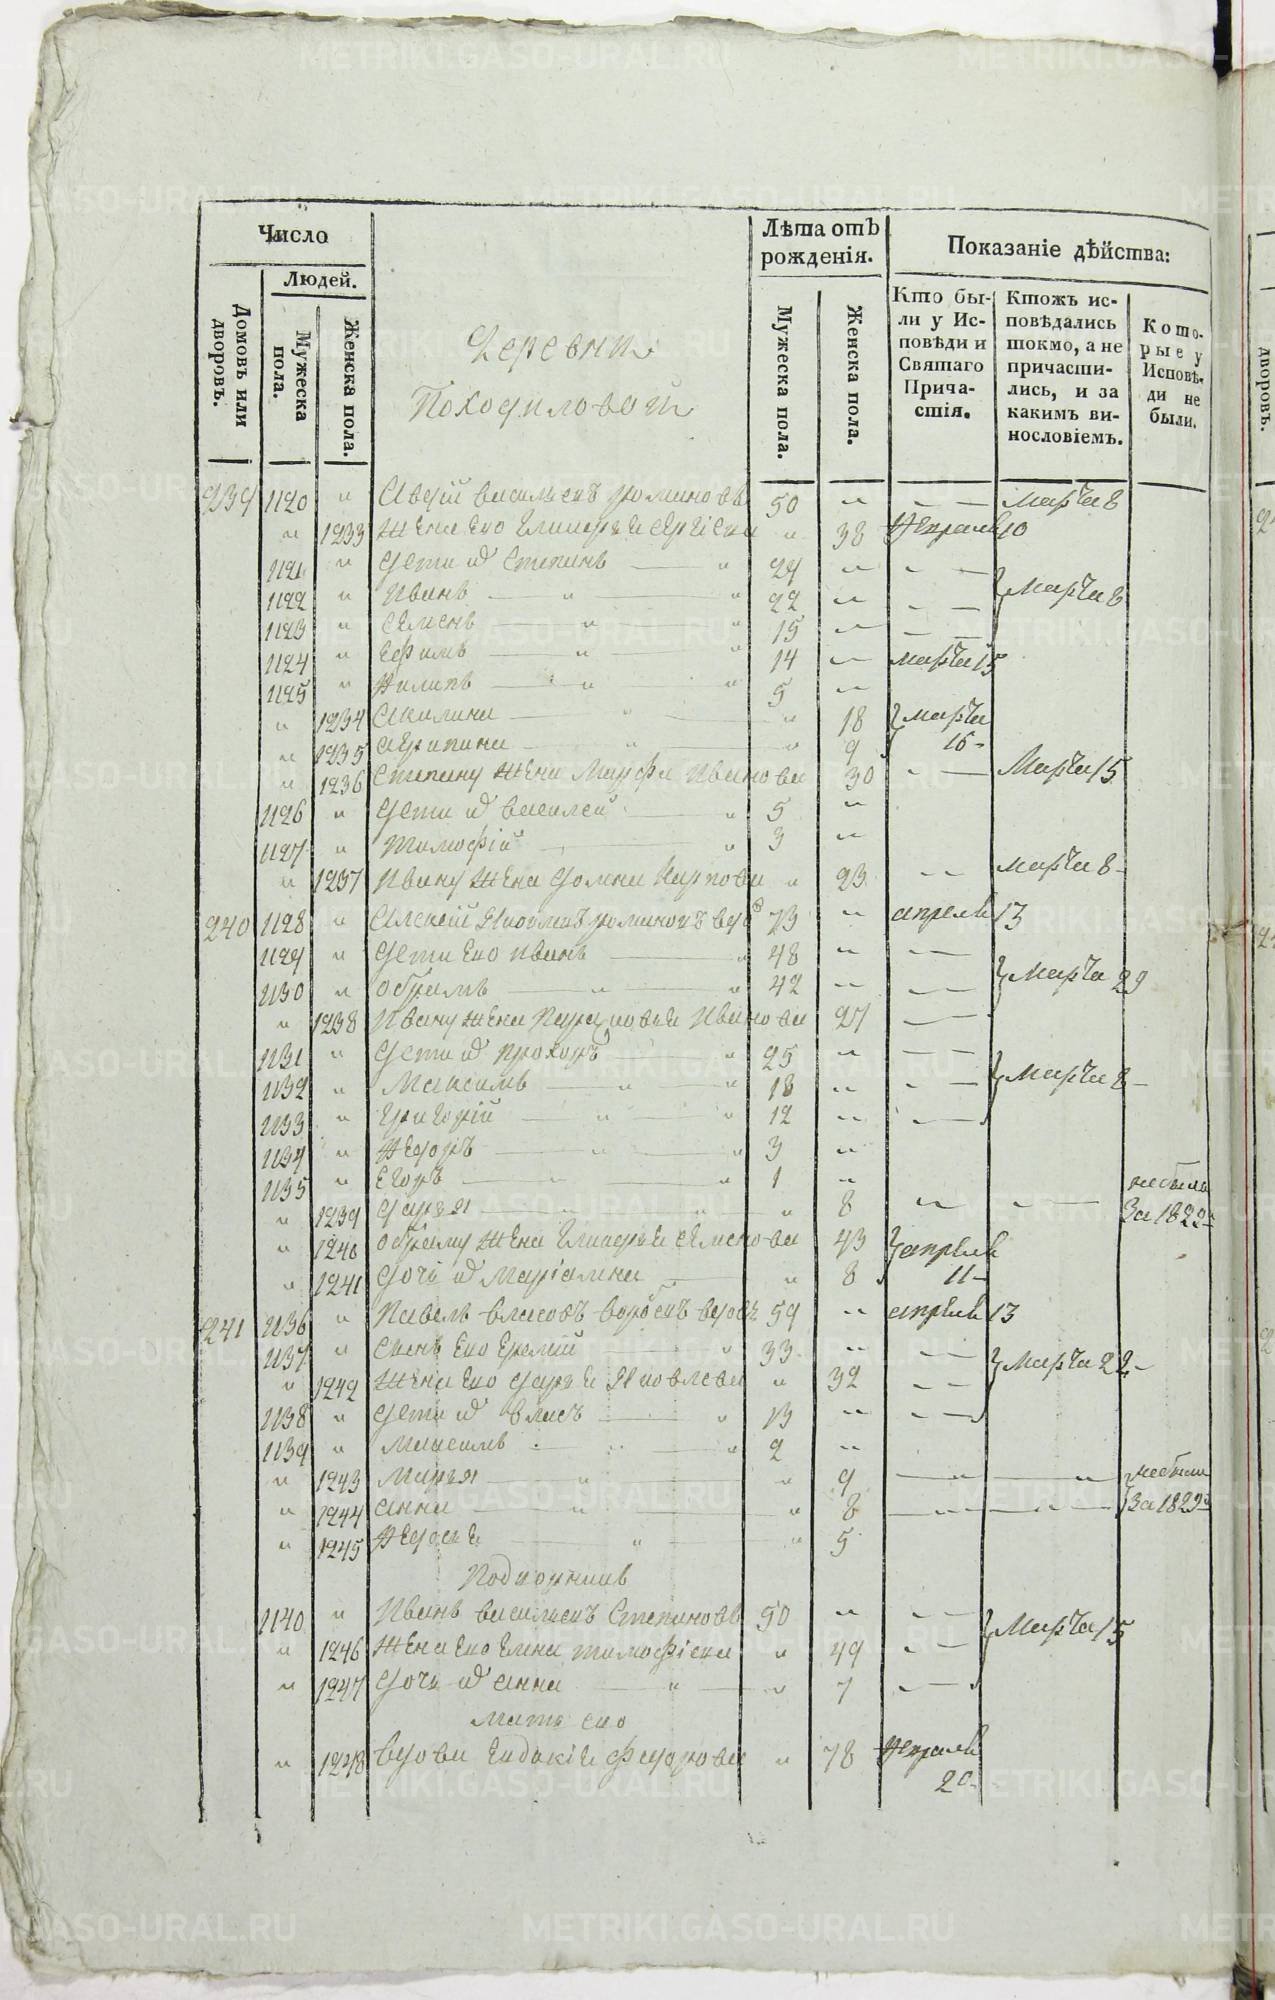 METRIKI.GASO-URAL.RU
Число
Людей.
Домовъ или дворовъ.
Мужеска пола.
Женска пола.
Лѣта отъ рожденія.
Мужеска пола.
Женска пола.
Показаніе дѣйства:
Кто бы-
ли у Ис-
повѣди и
Святаго
Прича-
стія.
Ктожъ ис-
повѣдались
токмо, а не
причасти-
лись, и за
какимъ ви-
нословіемъ.
Кото-
рые у
Исповѣ-
ди не
были.
Деревни
Походиловой
239 1120 " Авдій Васильевъ 50 " — Марта 8
" 1233 Жена его Гликерья " 38 Февраля 10
1121 " Дети их Степанъ — " 24 " —
1122 " Иванъ — " — " 22 " — Марта 8
1123 " Семенъ — " — " 15 " —
1124 " Ефимъ — " — " 14 " марта 15
1125 " Филипъ — " — " 5 "
" 1234 Акилина — " — " 18 марта
" 1235 Агрипина — " — " 9 16
" 1236 Степану жена Марфа Иванова 30 " — Марта 15
1126 " Дети их Василей — " 5 "
1127 " Тимофій — " 3 "
" 1237 Ивану жена Домна Карпова " 23 " — марта 8
240 1128 " Алексій 73 " апреля 13
1129 " Дети его Иванъ — " 48 " —
1130 " Обрамъ — " — " 42 " — Марта 29
" 1238 Ивану жена Парасковья Иванова 27 —
1131 " Дети их Прохоръ — " 25 " —
1132 " Максимъ — " — " 18 " — Марта 8
1133 " Григорій — " — " 12 " —
1134 " Федоръ — " — " 3 "
1135 " Егоръ — " — " 1 "
" 1239 Дарья — " — " 8 " — не была
за 1822
" 1240 Обраму жена Гликерья Семенова 43 апреля
" 1241 Дочь их Маріамна — " 8 11
241 1136 " Павелъ Власовъ вдовъ 59 " апреля 13
1137 " Сынъ его Еремій — " 33 " —
" 1242 Жена его Дарья Яковлева " 32 — Марта 22
1138 " Дети их Власъ — " 13 " —
1139 " Максимъ — " — " 2 "
" 1243 Марья — " — " 9 — " — " — не были
" 1244 Анна — " — " 8 — " — " — за 1822
" 1245 Федосья — " — " 5
1140 " Иванъ Васильевъ Степановъ 50 " —
" 1246 Жена его Елена Тимофіева " 49 " — Марта 15
" 1247 Дочь их Анна — " — " 7 —
Мать его
" 1248 Вдова Евдокія Федорова " 78 Февраля
20